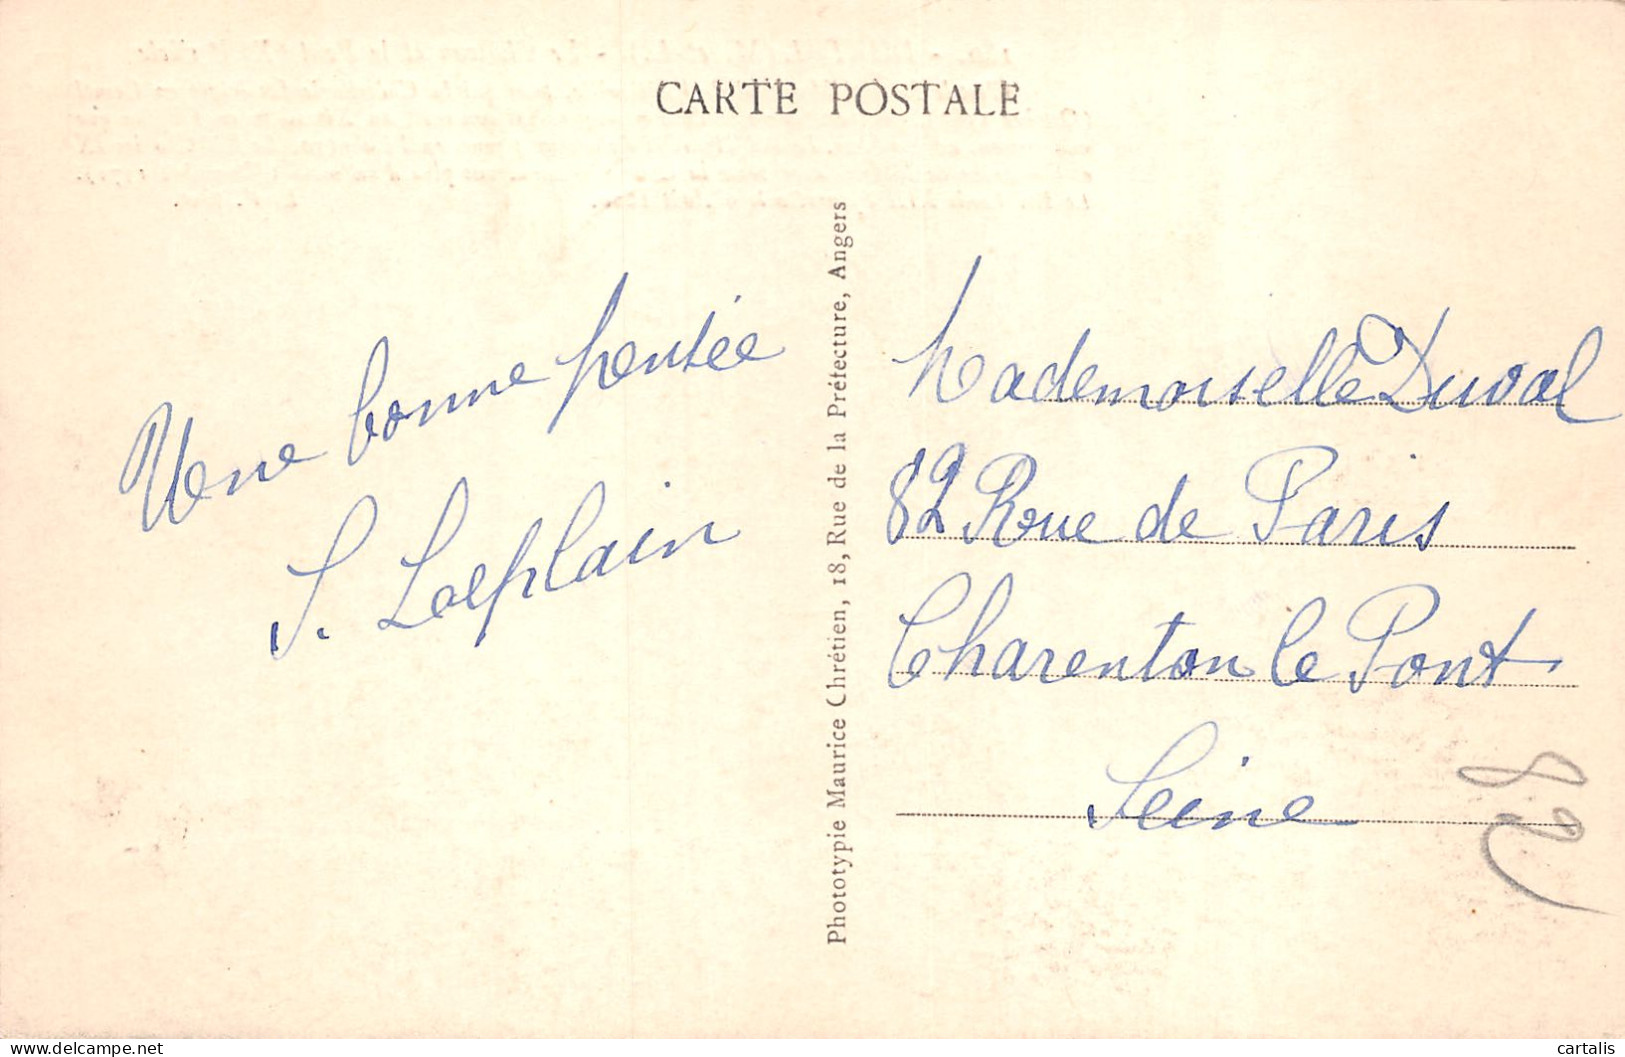 CARTE POSTALE
Une bonne pensée
S. Laeplain
Phototypie Maurice Chrétien, 18, Rue de la Préfecture, Angers
Mademoiselle Duval
82 Rue de Paris
Charenton le Pont
Seine
82
www.delcampe.net
cartalis